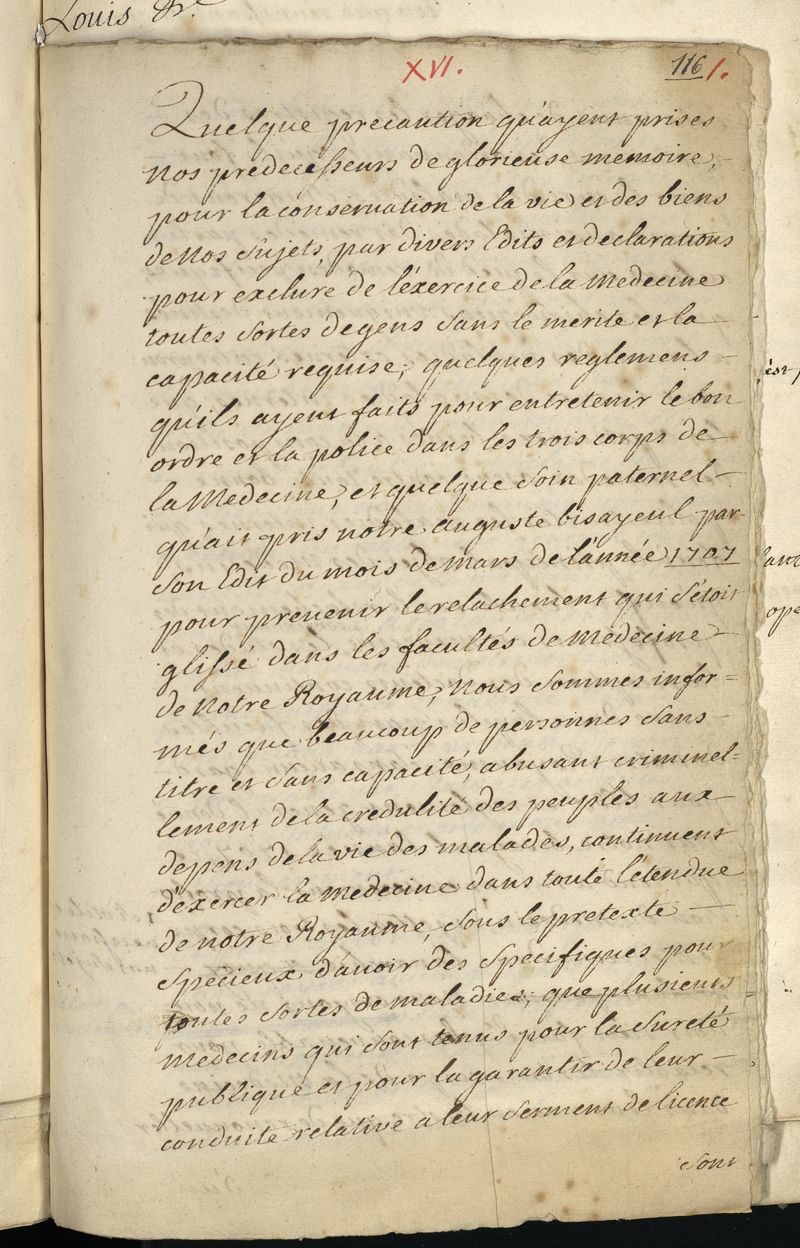 Louis &c.
XVI.
116 1.
Quelque precaution qu'ayent prises
nos predecesseurs de glorieuse memoire,
pour la conservation de la vie et des biens
de nos Sujets, par divers Edits et declarations
pour exclure de l'éxercice de la Medecine
toutes sortes de gens sans le merite et la
capacité requise; quelques reglemens
qu'ils ayent faits pour entretenir le bon
ordre et la police dans les trois corps de
la Medecine, et quelque soin paternel
qu'ait pris notre auguste bisayeul par
son Edit du mois de mars de l'année 1707
pour prevenir le relachement qui s'étoit
glissé dans les facultés de Medecine
de notre Royaume, nous sommes infor=
més que beaucoup de personnes sans
titre et sans capacité, abusant criminel=
lement de la credulité des peuples aux
depens de la vie des malades, continuent
d'exercer la medecine dans toute l'étendue
de notre Royaume, sous le pretexte
specieux d'avoir des specifiques pour
toutes sortes de maladies; que plusieurs
medecins qui sont tenus pour la sureté
publique et pour la garantir de leur
conduite relative a leur serment de licence
sont
ést
ope